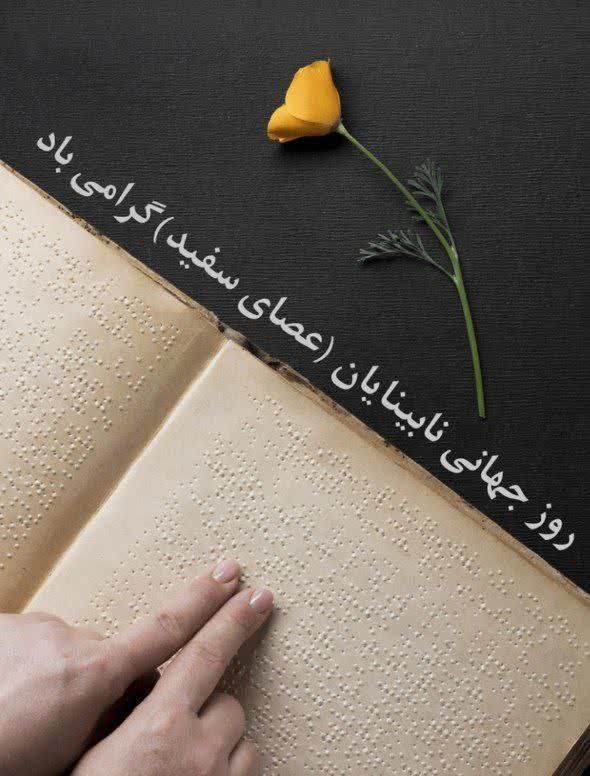 روز جهانی نابینایان (عصای سفید) گرامی باد